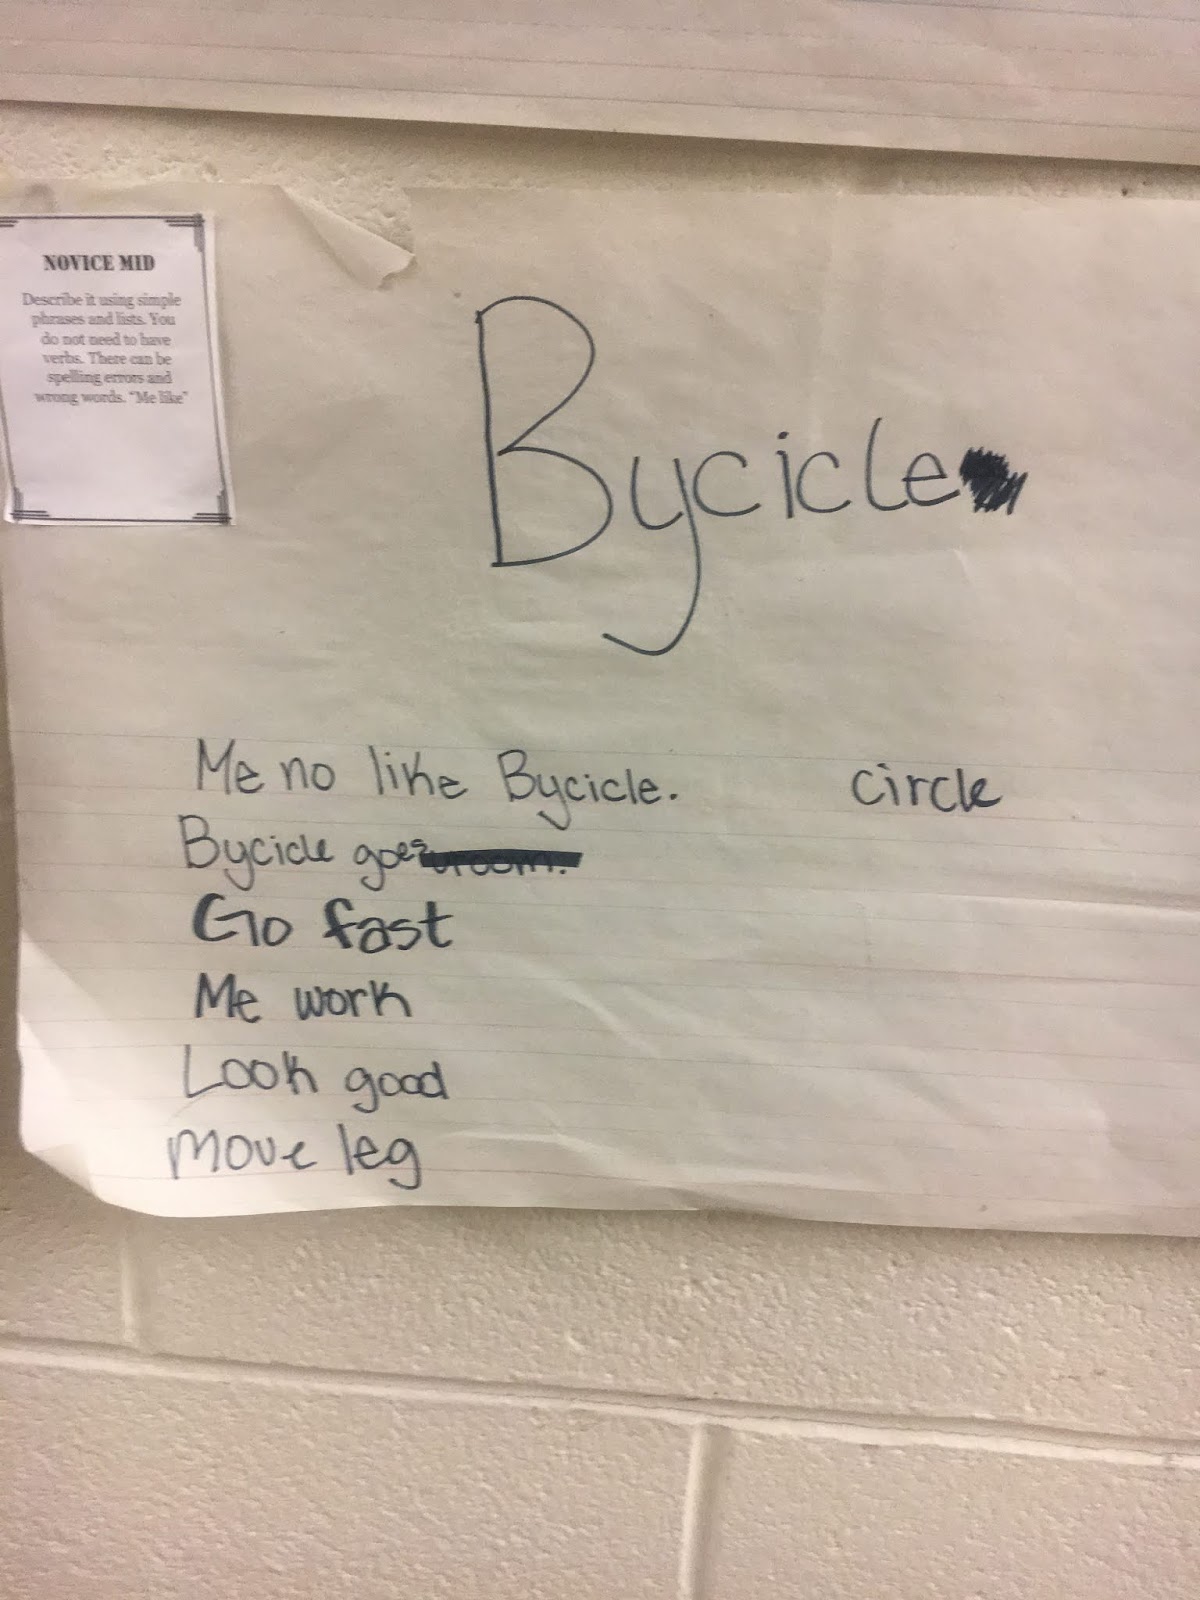 NOVICE MID
Describe it using simple
phrases and lists. You
do not need to have
verbs. There can be
spelling errors and
wrong words. "Me like"
Bycicle
Me no like Bycicle.
circle
Bycicle goes vroom.
Go fast
Me work
Look good
Move leg